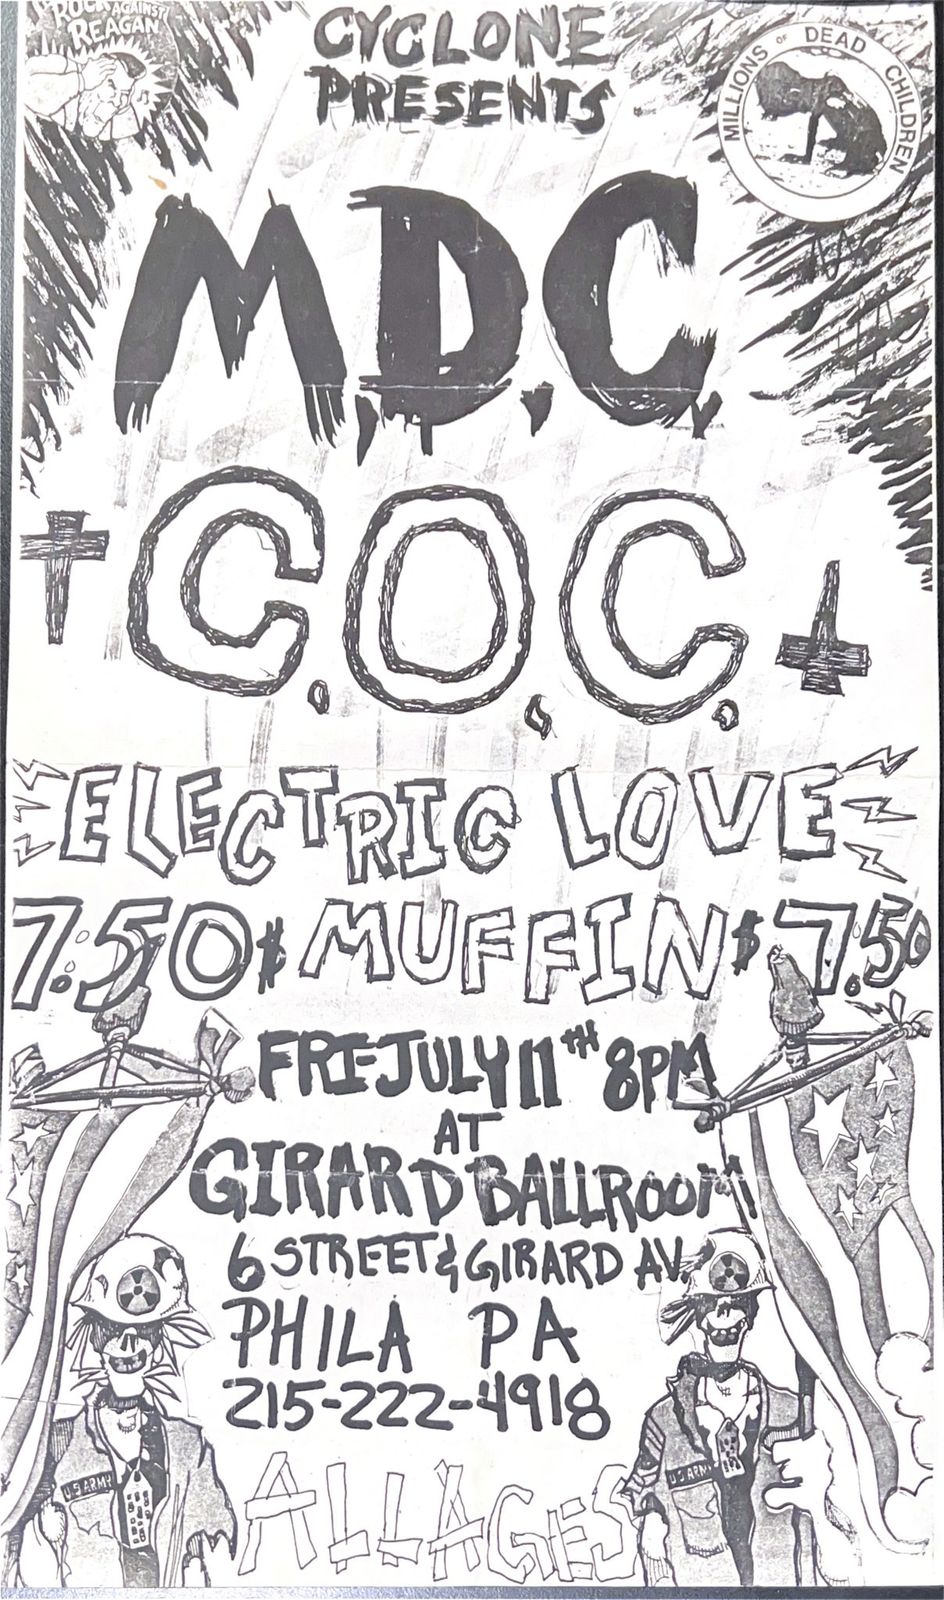 ROCK AGAINST
REAGAN
CYCLONE
PRESENTS
MILLIONS OF DEAD CHILDREN
M.D.C.
C.O.C.
ELECTRIC LOVE
7.50$ MUFFIN $7.50
FRI-JULY 11TH 8PM
AT
GIRARD BALLROOM
6 STREET & GIRARD AV.
PHILA PA
215-222-4918
U.S. ARMY
U.S. ARMY
ALL AGES